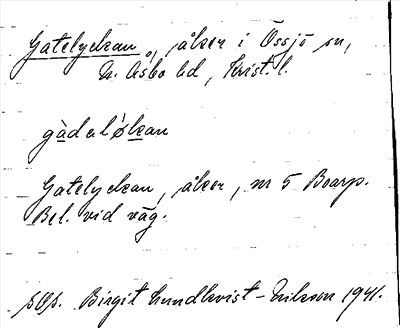 Gatelyckan, åker i Össjö sn,
N. Åsbo hd, Krist. l.
gàdalỳkan
Gatelyckan, åker, nr 5 Boarp.
Bel. vid väg.
Birgit Lundkvist-Nilsson 1941.